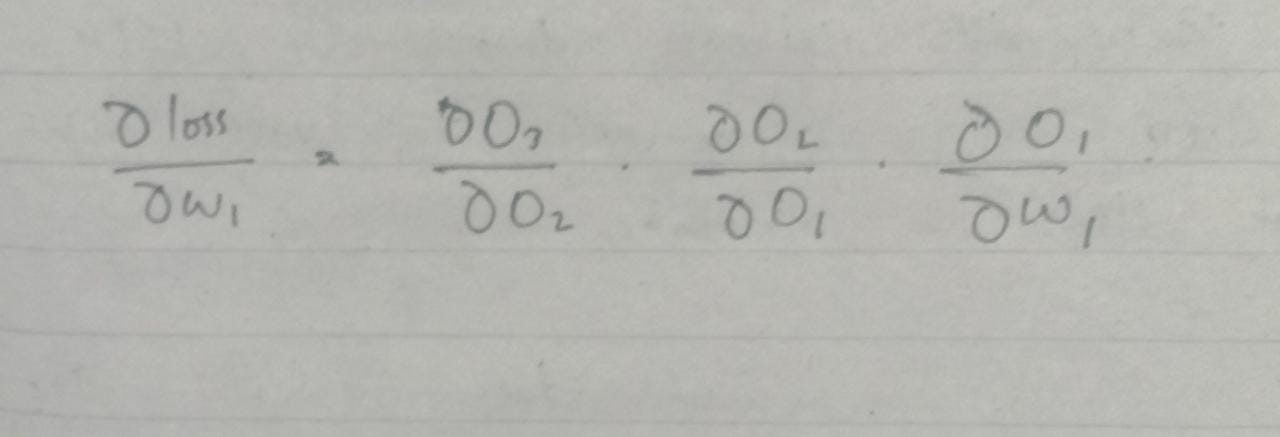 ∂loss/∂w₁ = ∂O₃/∂O₂ · ∂O₂/∂O₁ · ∂O₁/∂w₁